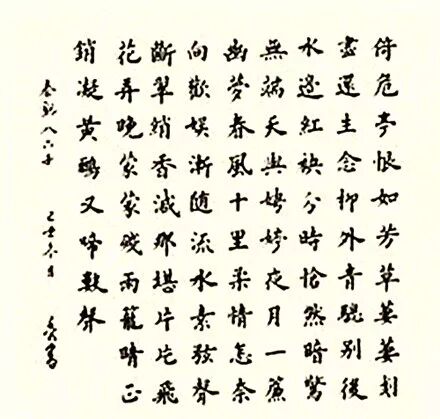 倚危亭恨如芳草萋萋刬
盡還生念柳外青驄別後
水邊紅袂分時愴然暗驚
無端天與娉婷夜月一簾
幽夢春風十里柔情怎奈
向歡娛漸隨流水素弦聲
斷翠綃香減那堪片片飛
花弄晚蒙蒙殘雨籠晴正
銷凝黃鸝又啼數聲
秦觀八六子 冬日